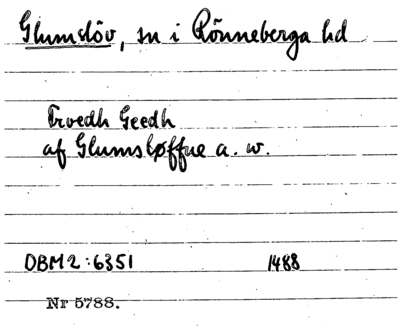 Glumslöv, sn i Rönneberga hd
Troedh Geedh
af Glumsløffue a. w.
DBM 2:6351 1488
Nr 5788.